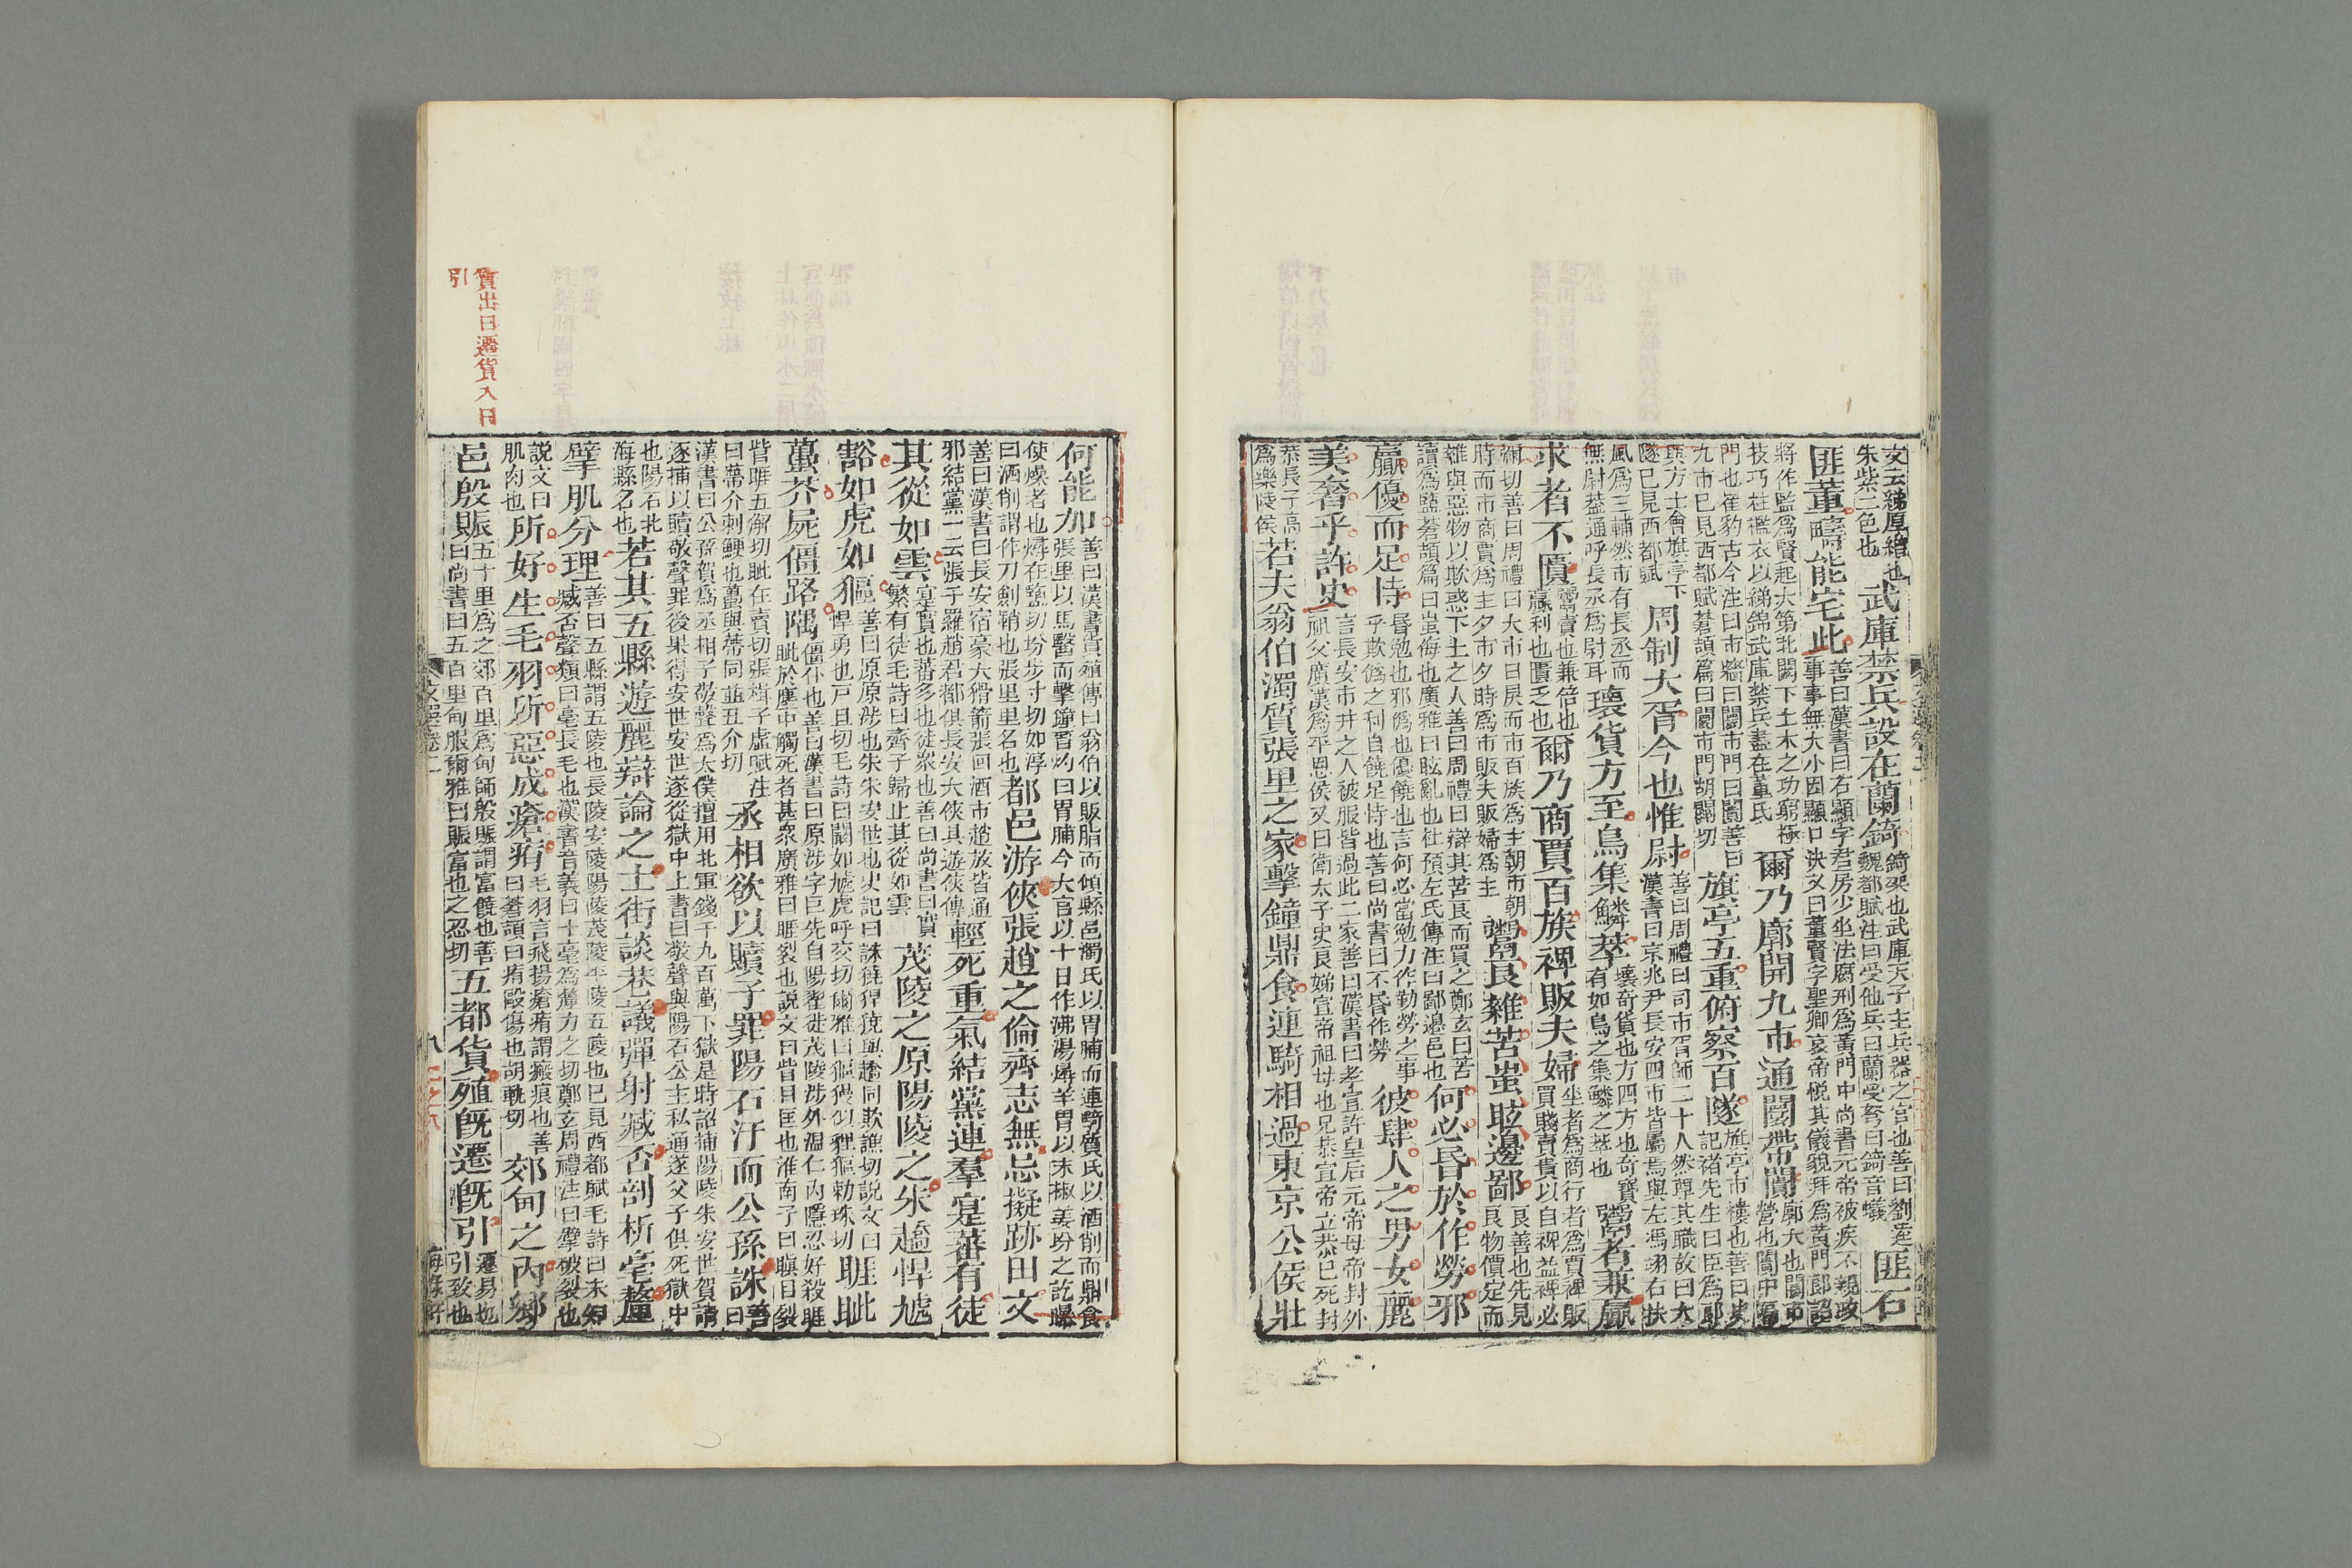 文云綈厚繒也
朱紫二色也
武庫禁兵設在蘭錡
錡架也武庫天子主兵器之官也善曰劉逵
魏都賦注曰受他兵曰蘭受弩曰錡音蟻
匪石
匪董疇能宅此
善曰漢書曰石顯字君房少坐法腐刑為黃門中尚書元帝被疾不親政
事事無大小因顯口決又曰董賢字聖卿哀帝悅其儀貌拜為黃門郎詔
將作監為賢起大第北闕下土木之功窮極
技巧柱檻衣以綈錦武庫禁兵盡在董氏
爾乃廓開九市通闤帶闠
廓大也闤市
營也闠中隔
門也崔豹古今注曰市牆曰闤市門曰闠善曰
九市已見西都賦蒼頡篇曰闤市門胡關切
旗亭五重俯察百隧
旗亭市樓也善曰史
記褚先生曰臣為郎
與方士會旗亭下
隧已見西都賦
周制大胥今也惟尉
善曰周禮曰司市胥師二十人然尊其職故曰大
漢書曰京兆尹長安四市皆屬焉與左馮翊右扶
風為三輔然市有長丞而
無尉蓋通呼長丞為尉耳
瓌貨方至鳥集鱗萃
瓌奇貨也方四方也奇寶
有如鳥之集鱗之萃也
鬻者兼贏
求者不匱
鬻賣也兼倍也
贏利也匱乏也
爾乃商賈百族裨販夫婦
坐者為商行者為賈裨販
買賤賣貴以自裨益裨必
彌切善曰周禮曰大市日昃而市百族為主朝市朝
時而市商賈為主夕市夕時為市販夫販婦為主
鬻良雜苦蚩眩邊鄙
良善也先見
良物價定而
雜與惡物以欺惑下土之人善曰周禮曰辯其苦良而買之鄭玄曰苦
讀為盬蒼頡篇曰蚩侮也廣雅曰眩亂也杜預左氏傳注曰鄙邊邑也
何必昏於作勞邪
贏優而足恃
昏勉也邪偽也優饒也言何必當勉力作勤勞之事
乎欺偽之利自饒足恃也善曰尚書曰不昏作勞
彼肆人之男女麗
美奢乎許史
言長安市井之人被服皆過此二家善曰漢書曰孝宣許皇后元帝母帝封外
祖父廣漢為平恩侯又曰衛太子史良娣宣帝祖母也兄恭宣帝立恭已死封
恭長子高
為樂陵侯
若夫翁伯濁質張里之家擊鐘鼎食連騎相過東京公侯壯
何能加
善曰漢書貨殖傳曰翁伯以販脂而傾縣邑濁氏以胃脯而連騎質氏以洒削而鼎食
張里以馬醫而擊鐘晉灼曰胃脯今大官以十日作沸湯燖羊胃以末椒薑坋之訖曝
使燥者也燖在鹽切坋步寸切如淳
曰洒削謂作刀劍鞘也張里里名也
都邑游俠張趙之倫齊志無忌擬跡田文
善曰漢書曰長安宿豪大猾箭張回酒市趙放皆通
邪結黨一云張子羅趙君都俱長安大俠其遊俠傳
輕死重氣結黨連羣寔蕃有徒
其從如雲
寔實也蕃多也徒衆也善曰尚書曰實
繁有徒毛詩曰齊子歸止其從如雲
茂陵之原陽陵之朱趫悍虓
豁如虎如貙
善曰原原涉也朱朱安世也史記曰誅獟猂獟與趫同欺譙切說文曰
悍勇也戶旦切毛詩曰闞如虓虎呼交切爾雅曰貙獌似貍貙勑珠切
睚眦
蠆芥屍僵路隅
僵仆也善曰漢書曰原涉字巨先自陽翟徙茂陵涉外溫仁內隱忍好殺睚
眦於塵中觸死者甚衆廣雅曰睚裂也說文曰眥目匡也淮南子曰瞋目裂
眥睚五懈切眦在賣切張揖子虛賦注
曰蔕介刺鯁也蠆與蔕同並丑介切
丞相欲以贖子罪陽石汙而公孫誅
善
曰
漢書曰公孫賀為丞相子敬聲為大僕擅用北軍錢千九百萬下獄是時詔捕陽陵朱安世賀請
逐捕以贖敬聲罪後果得安世安世遂從獄中上書曰敬聲與陽石公主私通遂父子俱死獄中
也陽石北
海縣名也
若其五縣遊麗辯論之士街談巷議彈射臧否剖析毫釐
擘肌分理
善曰五縣謂五陵也長陵安陵陽陵茂陵平陵五陵也已見西都賦毛詩曰未知
臧否聲類曰毫長毛也漢書音義曰十毫為氂力之切鄭玄周禮注曰擘破裂也
說文曰
肌肉也
所好生毛羽所惡成瘡痏
毛羽言飛揚瘡痏謂瘢痕也善
曰蒼頡曰痏毆傷也胡軌切
郊甸之內鄉
邑殷賑
五十里為之郊百里為甸師殷賑謂富饒也善
曰尚書曰五百里甸服爾雅曰賑富也之忍切
五都貨殖旣遷旣引
遷易也
引致也
文選卷二
九
賓出曰遷貨入曰
引